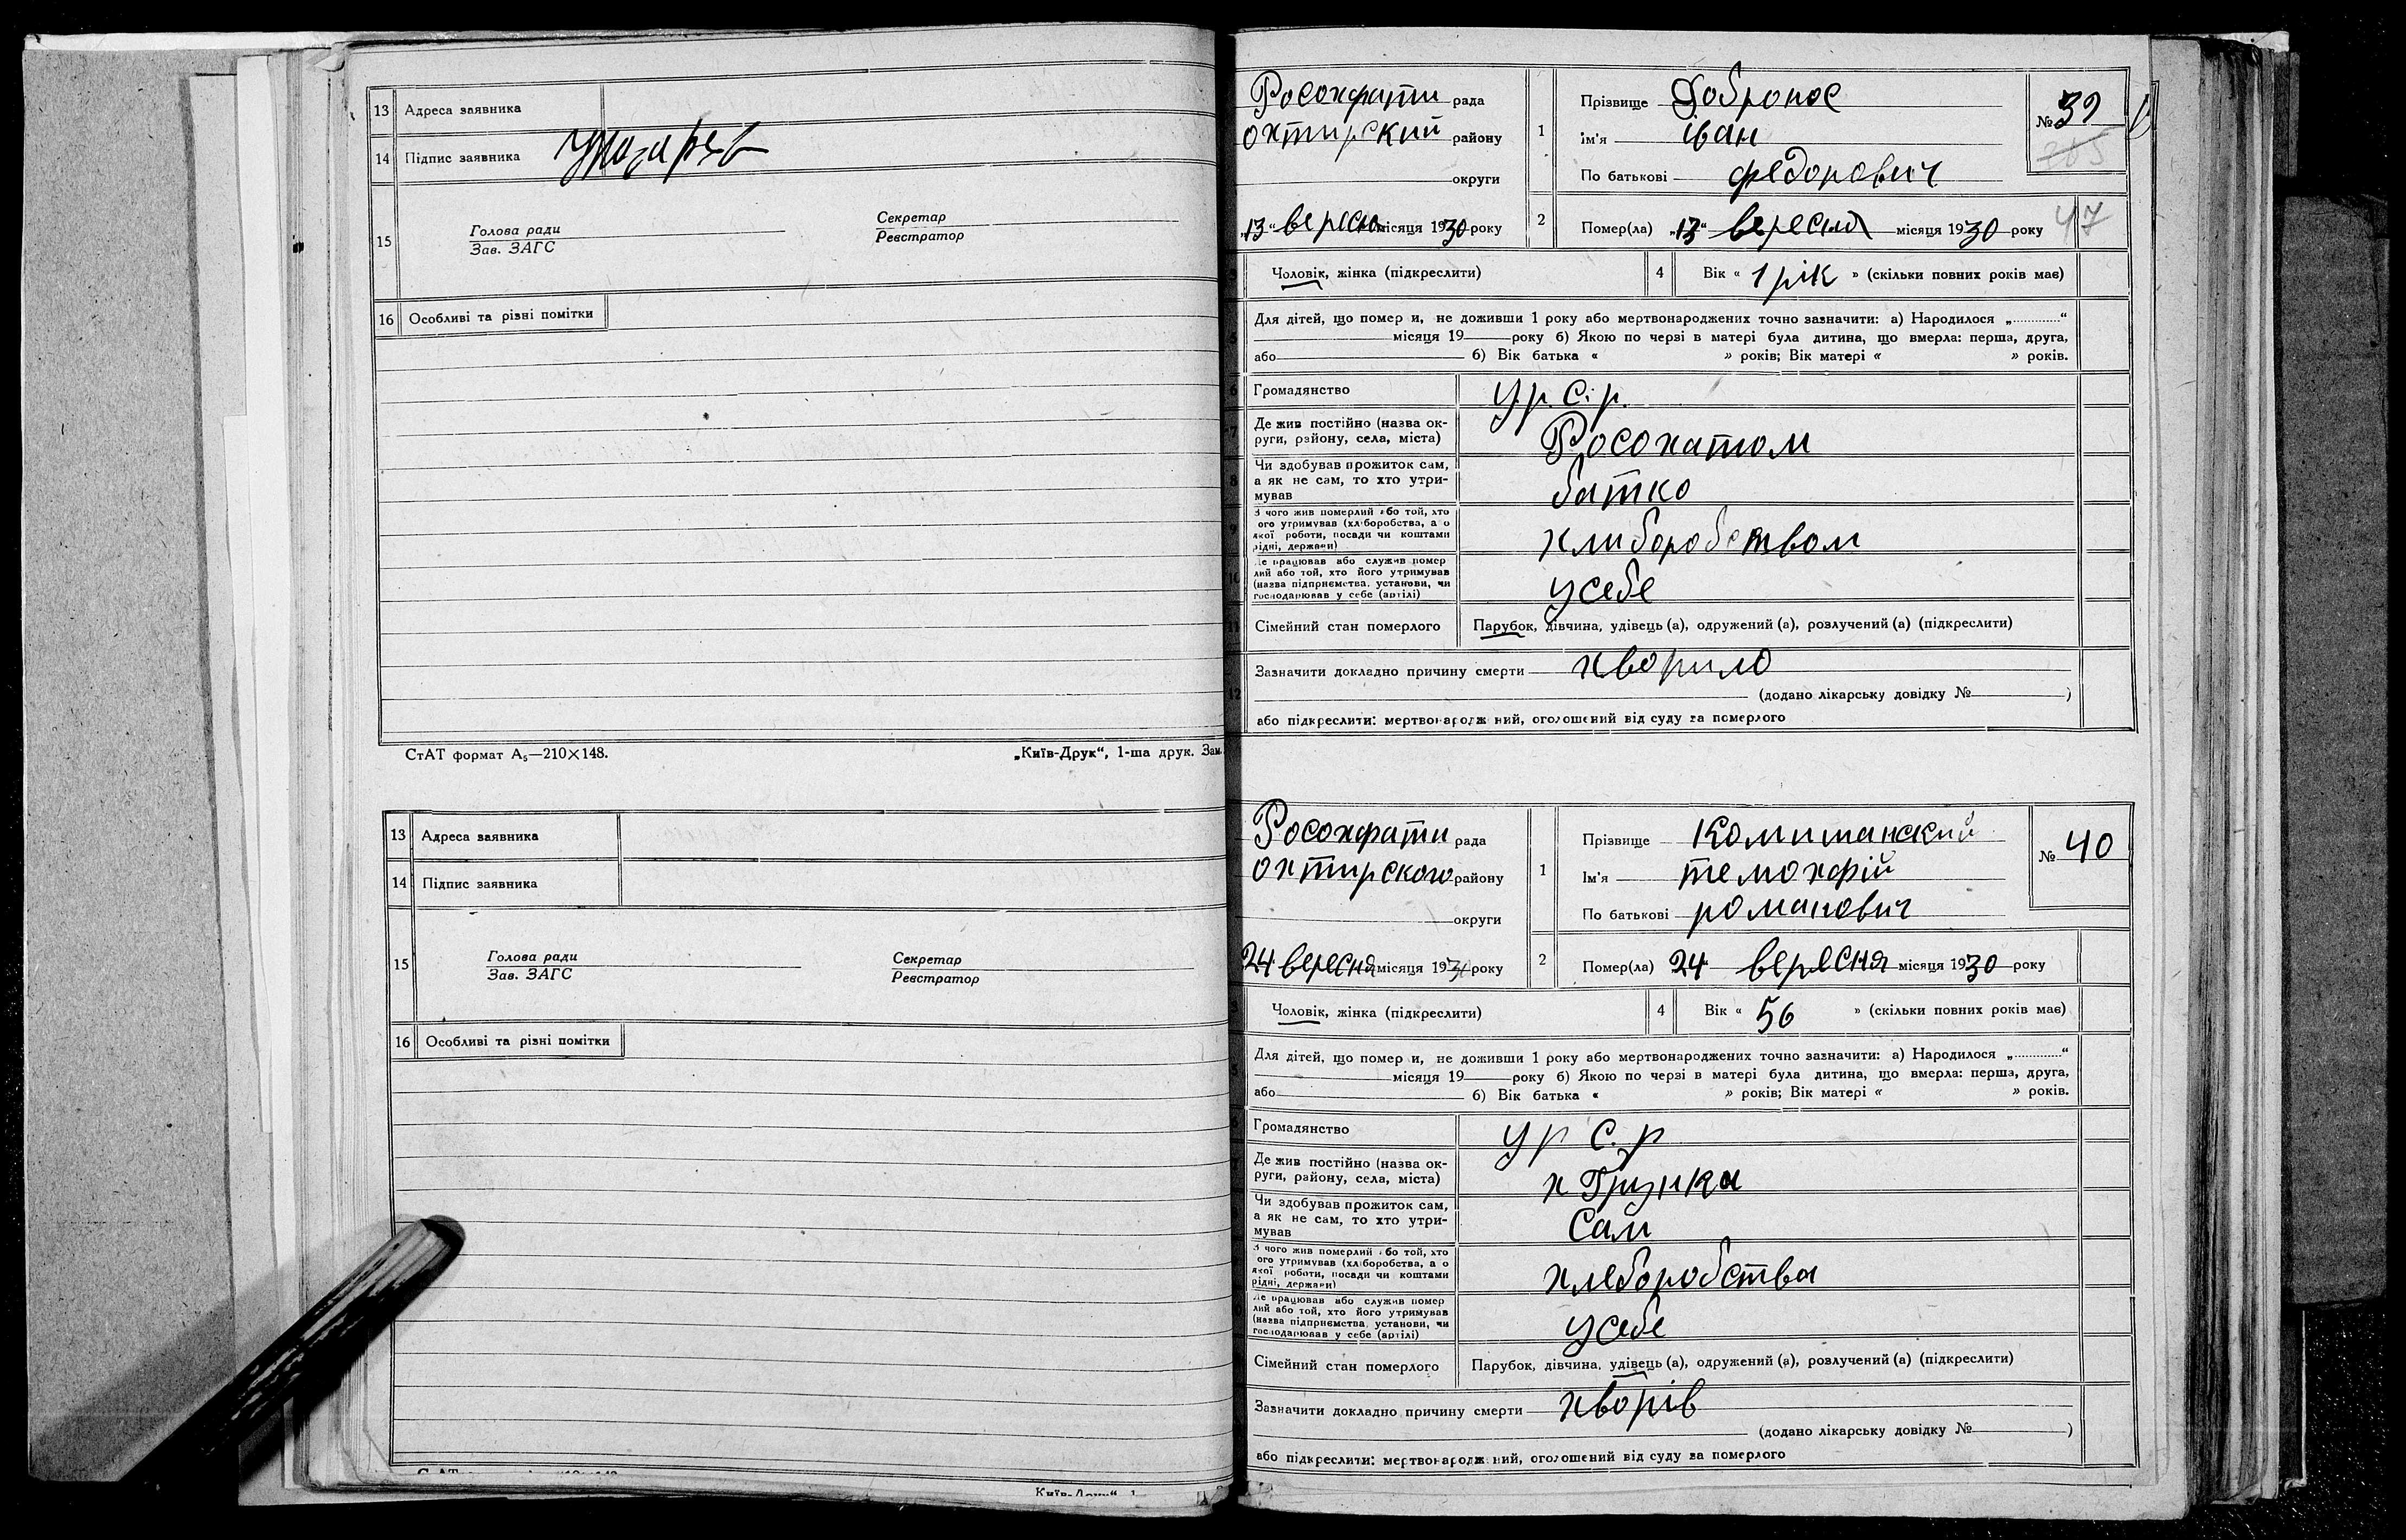 13 Адреса заявника
14 Підпис заявника
15
Голова ради
Зав. ЗАГС
Секретар
Реєстратор
16 Особливі та різні помітки
СтАТ формат А₅—210×148.
„Київ-Друк“, 1-ша друк. Зам.
13 Адреса заявника
14 Підпис заявника
15
Голова ради
Зав. ЗАГС
Секретар
Реєстратор
16 Особливі та різні помітки
Росохфати рада
охтирский району
округи
„13“ вересня місяця 1930 року
1
Прізвище Добронос
Ім'я іван
По батькові федорович
№ 39
2 Помер(ла) „13“ вересня місяця 1930 року
47
Чоловік, жінка (підкреслити)
4 Вік « 1 рік » (скільки повних років має)
Для дітей, що помер и, не доживши 1 року або мертвонароджених точно зазначити: а) Народилося „............“
місяця 19 року б) Якою по черзі в матері була дитина, що вмерла: перша, друга,
або б) Вік батька « » років; Вік матері « » років.
Громадянство У.р.С.р.
Де жив постійно (назва ок-
руги, району, села, міста) Росохатом
Чи здобував прожиток сам,
а як не сам, то хто утри-
мував батко
З чого жив померлий або той, хто
ого утримував (хліборобства, а о
якої роботи, посади чи коштами
рідні, держави) хлиборобством
Де працював або служив помер
лий або той, хто його утримував
(назва підприємства, установи, чи
господарював у себе (артілі) усебе
11 Сімейний стан померлого Парубок, дівчина, удівець (а), одружений (а), розлучений (а) (підкреслити)
12 Зазначити докладно причину смерти хворило
(додано лікарську довідку № )
або підкреслити: мертвонароджений, оголошений від суду за померлого
Росохфати рада
охтирского району
округи
24 вересня місяця 1930 року
1
Прізвище Комишанский
Ім'я темохфій
По батькові романович
№ 40
2 Помер(ла) 24 вересня місяця 1930 року
Чоловік, жінка (підкреслити)
4 Вік « 56 » (скільки повних років має)
Для дітей, що помер и, не доживши 1 року або мертвонароджених точно зазначити: а) Народилося „............“
місяця 19 року б) Якою по черзі в матері була дитина, що вмерла: перша, друга,
або б) Вік батька « » років; Вік матері « » років.
Громадянство У р С. р
Де жив постійно (назва ок-
руги, району, села, міста) х Грунка
Чи здобував прожиток сам,
а як не сам, то хто утри-
мував Сам
З чого жив померлий або той, хто
ого утримував (хліборобства, а о
якої роботи, посади чи коштами
рідні, держави) хлеборобства
Де працював або служив помер
лий або той, хто його утримував
(назва підприємства, установи, чи
господарював у себе (артілі) усебе
Сімейний стан померлого Парубок, дівчина, удівець (а), одружений (а), розлучений (а) (підкреслити)
Зазначити докладно причину смерти хворів
(додано лікарську довідку № )
або підкреслити: мертвонароджений, оголошений від суду за померлого